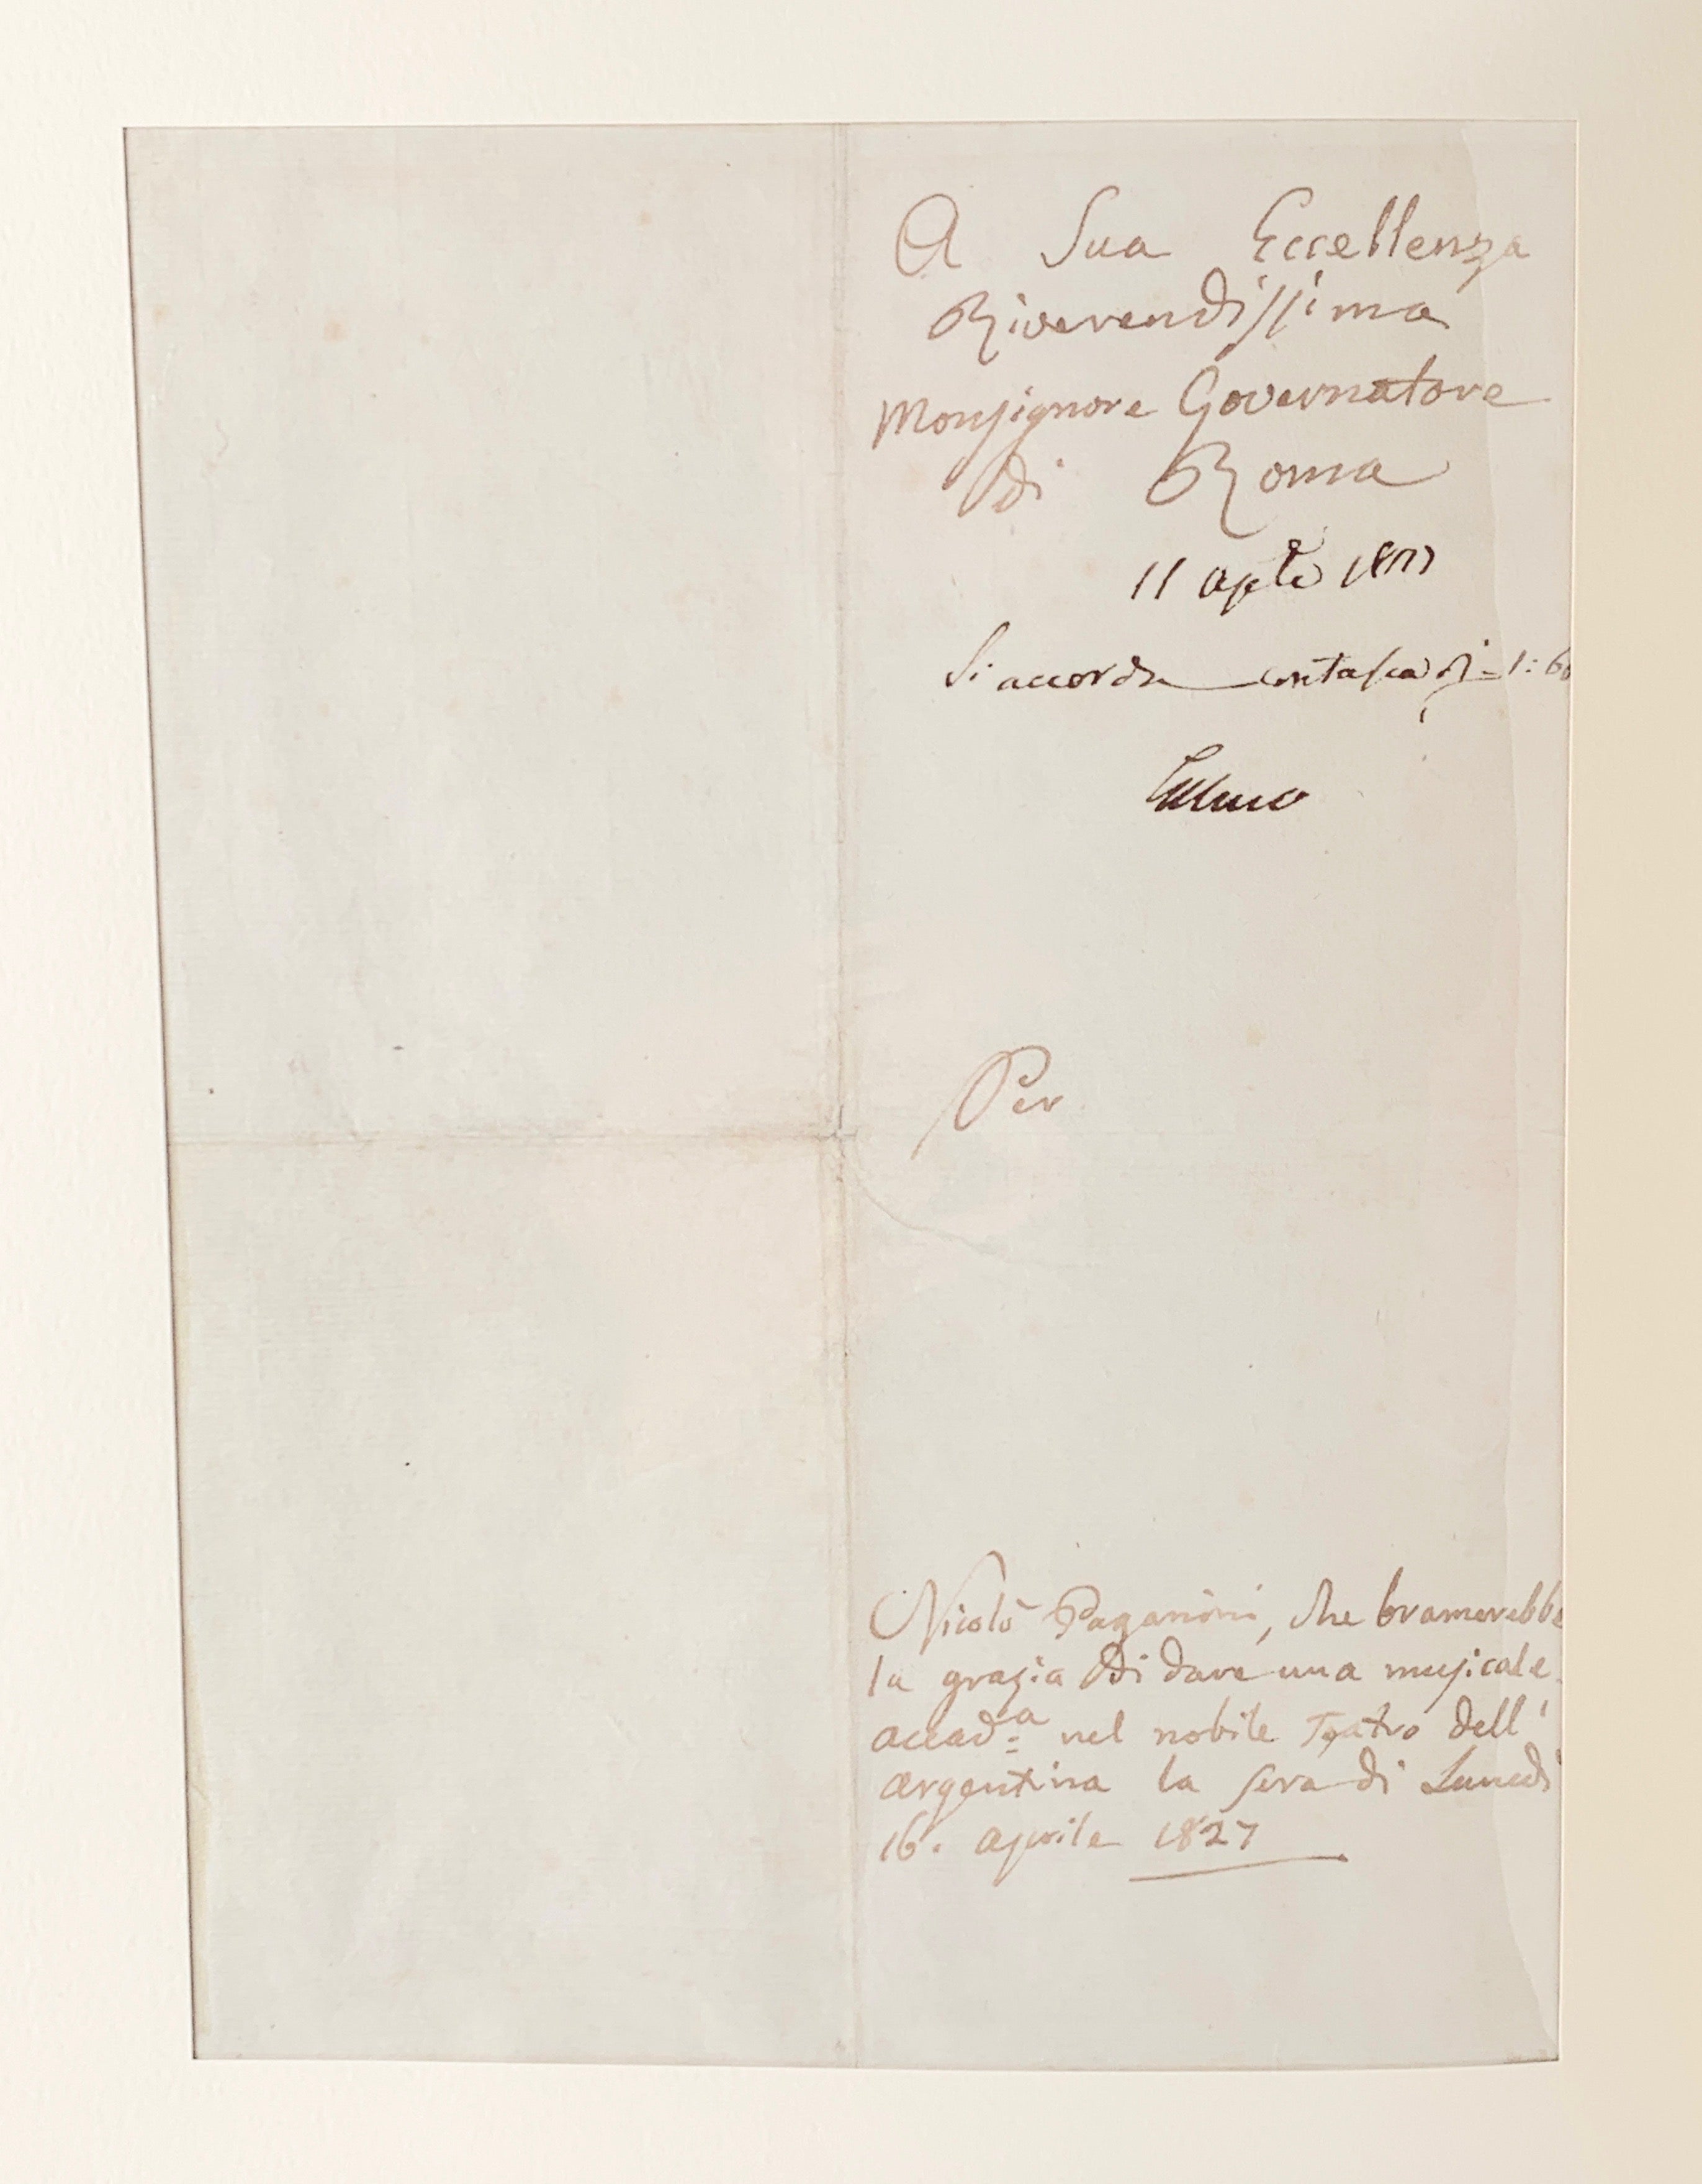 A Sua Eccellenza
Riverendissima
Monsignore Governatore
di Roma
11 aple 1827
Si accorda con tassa di 1:60
Per
Nicolò Paganini, che bramerebbe
la grazia di dare una musicale
accad.a nel nobile Teatro dell'
argentina la sera di Lunedì
16. aprile 1827